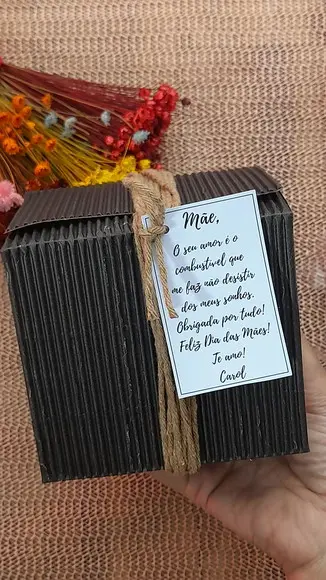 Mãe,
O seu amor é o
combustível que
me faz não desistir
dos meus sonhos.
Obrigada por tudo!
Feliz Dia das Mães!
Te amo!
Carol